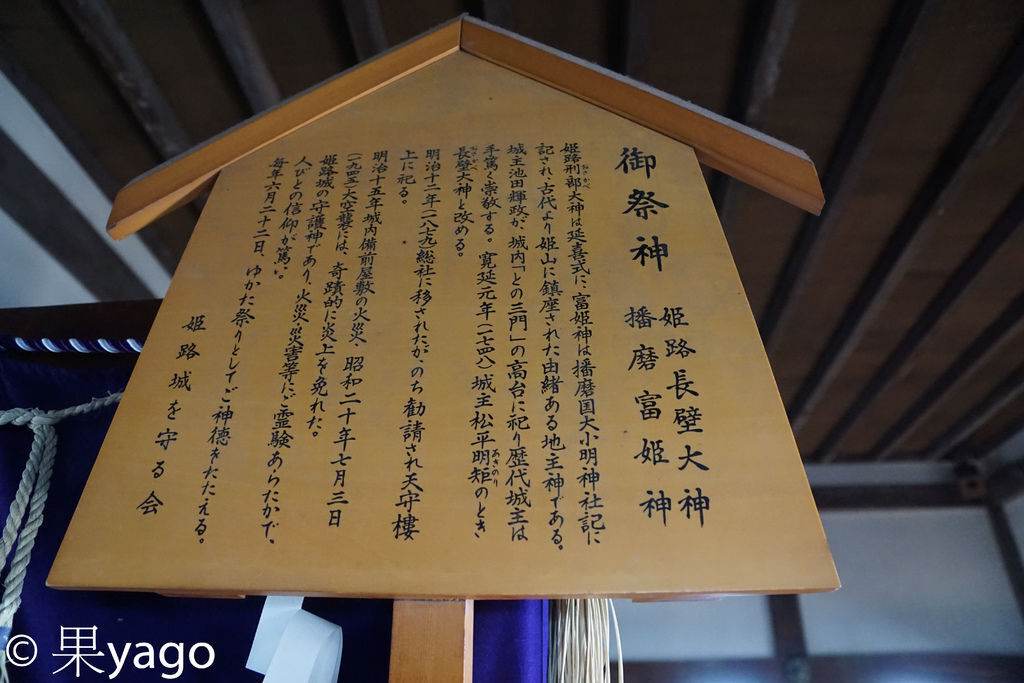 御祭神
姫路長壁大神
播磨富姫神
姫路刑部大神は延喜式に、富姫神は播磨国大小明神社記に
記され、古代より姫山に鎮座された由緒ある地主神である。
城主池田輝政が、城内「との三門」の高台に祀り歴代城主は
手篤く崇敬する。寛延元年(一七四八)城主松平明矩のとき
あきのり
長壁大神と改める。
明治十二年(一八七九)総社に移されたが、のち勧請され天守樓
上に祀る。
明治十五年城内備前屋敷の火災・昭和二十年七月三日
(一九四五)大空襲には、奇蹟的に炎上を免れた。
姫路城の守護神であり、火災・災害等にご霊験あらたかで、
人びとの信仰が篤い。
毎年六月二十二日、ゆかた祭りとしてご神徳をたたえる。
姫路城を守る会
© 果yago